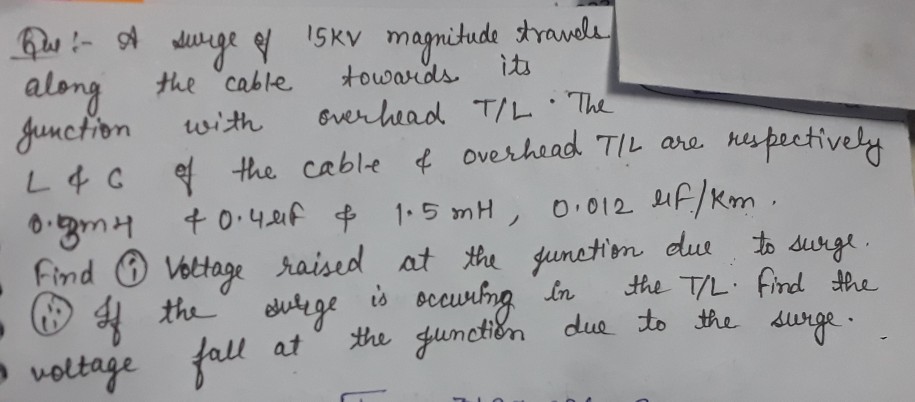 Que :- A surge of 15KV magnitude travels
along the cable towards its
junction with overhead T/L. The
L & C of the cable & overhead T/L are respectively
0.3mH & 0.4μf & 1.5 mH, 0.012 μF/Km.
Find ① Voltage raised at the junction due to surge.
② If the surge is occuring in the T/L. Find the
voltage fall at the junction due to the surge.